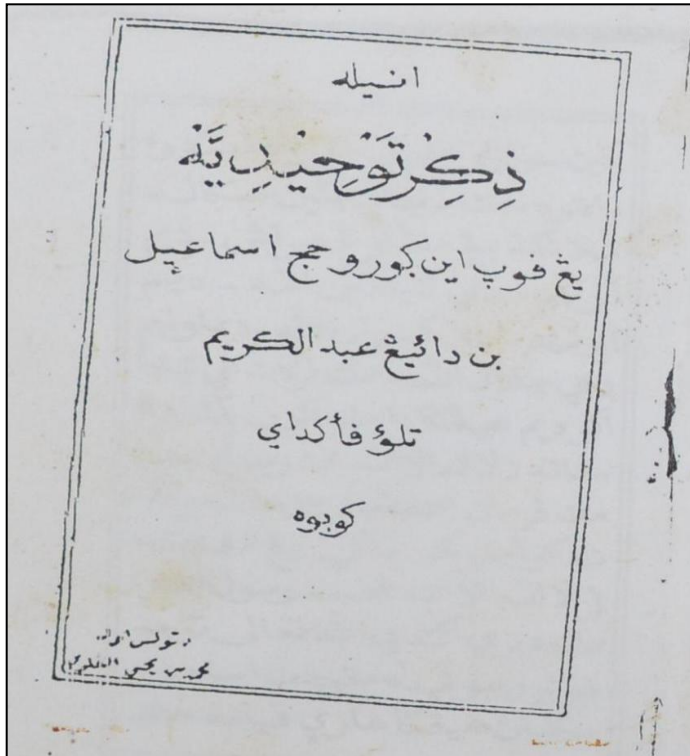 انيله
ذِكِرْ تَوْحِيْدِيَّهْ
يڠ فوڽ اين كورو حج اسماعيل
بن دائيڠ عبد الكريم
تلؤ فأكداي
كوبوه
دتولس اوله
محمد بن يحيى